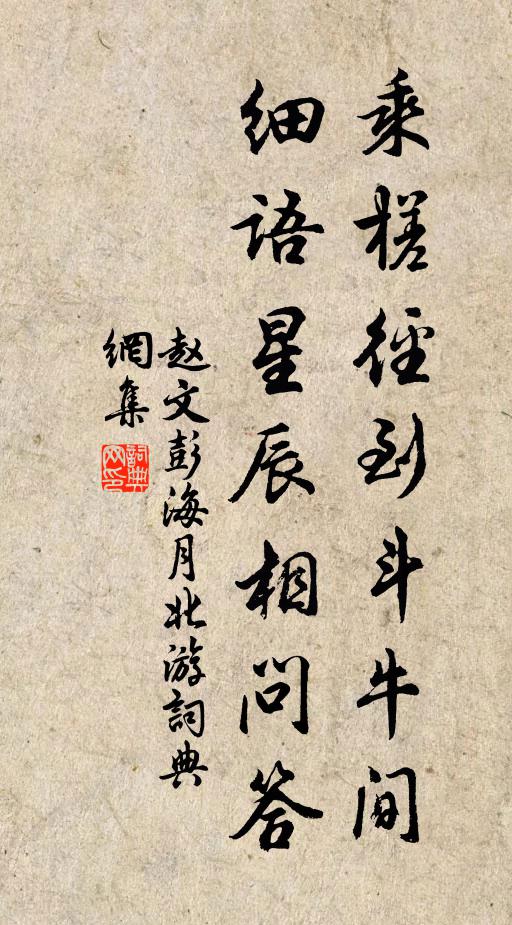 乘槎径到斗牛间
细语星辰相问答
赵文彭海月北游词典
網集
詞典
网印